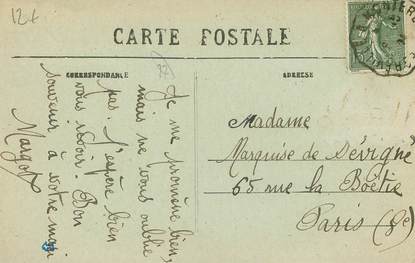 12 €
CARTE POSTALE
CORRESPONDANCE
ADRESSE
Je me promène bien,
mais ne vous oublie
pas. J'espère bien
vous revoir. Bon
souvenir à votre mari
Margot
Madame
Marquise de Sévigné
65 rue la Boëtie
Paris (8e)